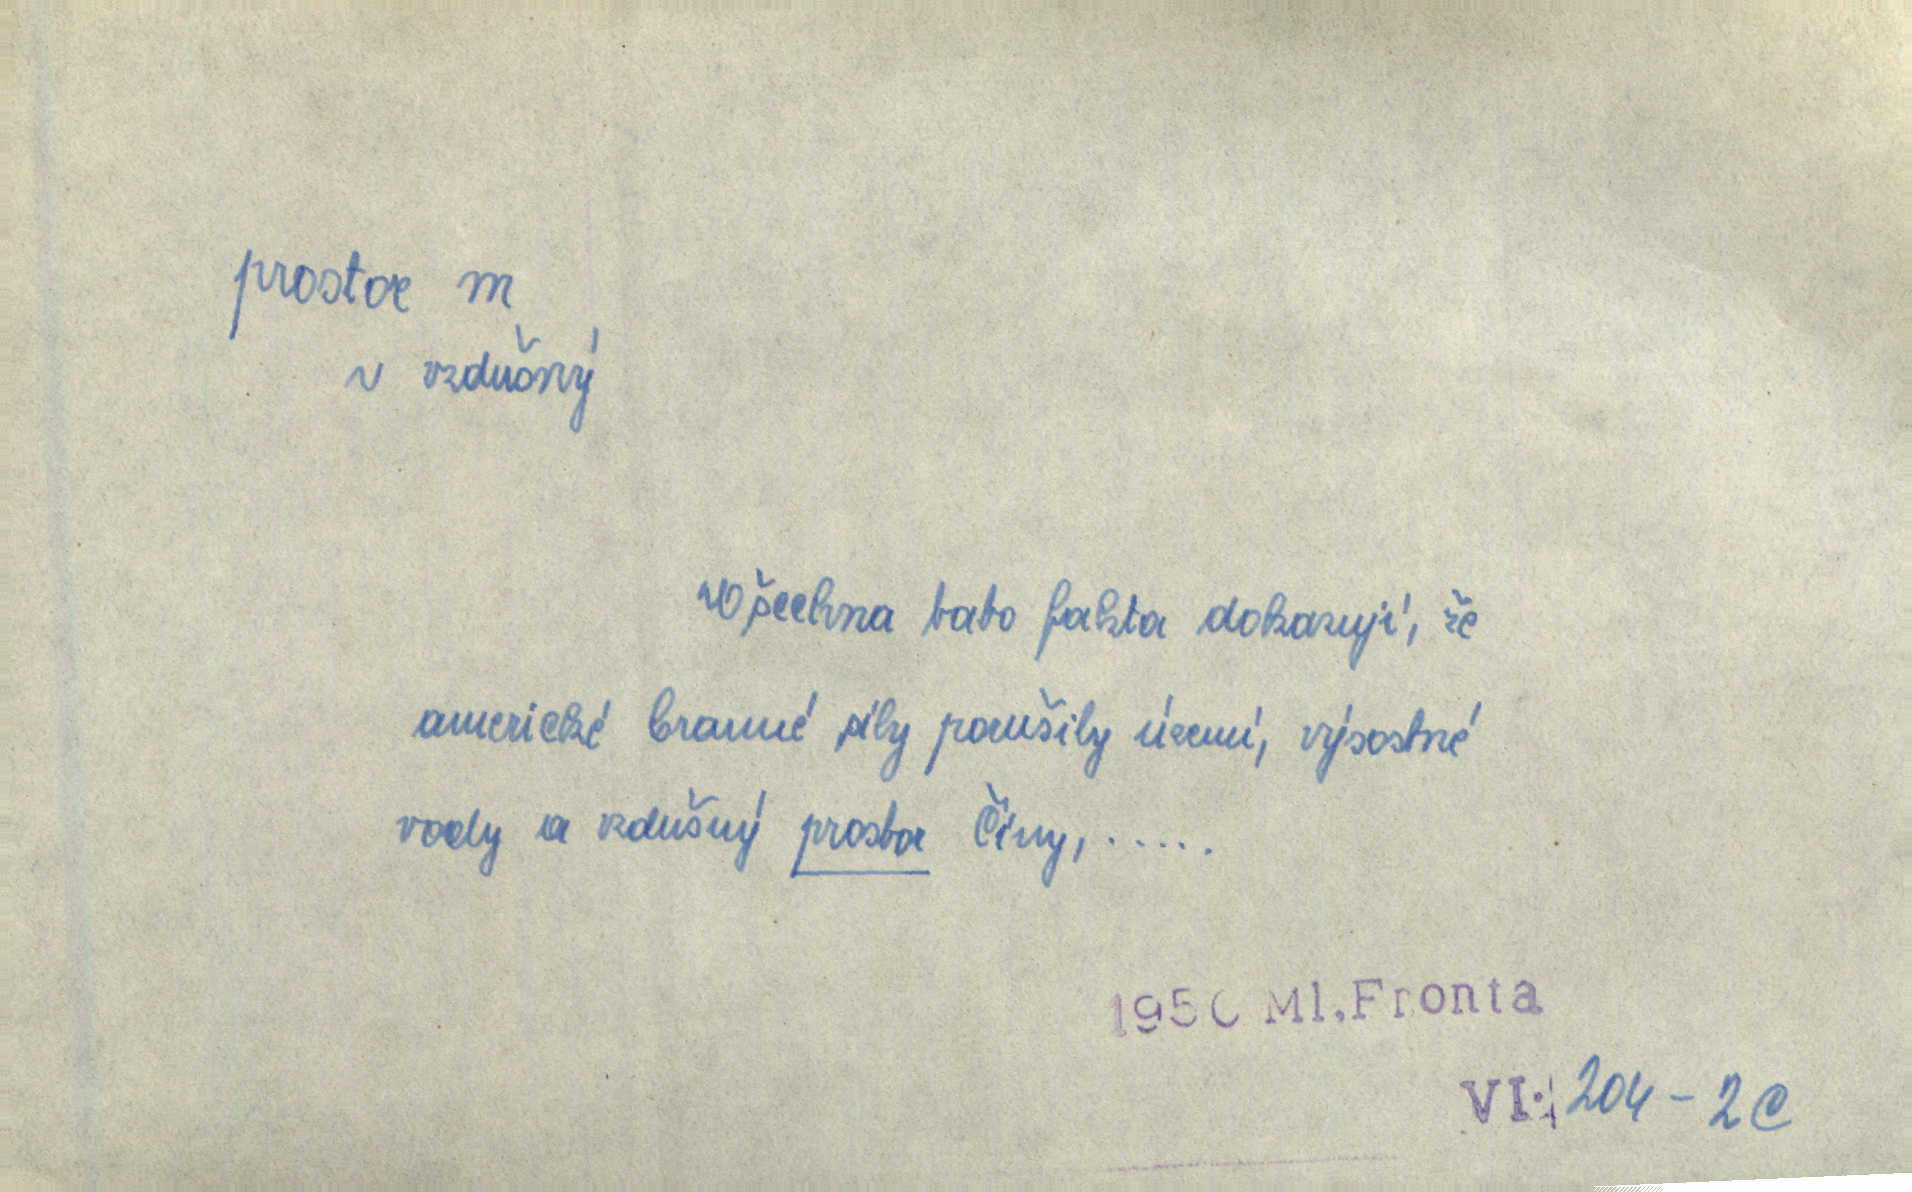 prostor m
~ vzdušný
Všechna tato fakta dokazují, že
americké branné síly porušily území, výsostné
vody a vzdušný prostor Číny, .....
1950 Ml.Fronta
VI. 204 - 2c